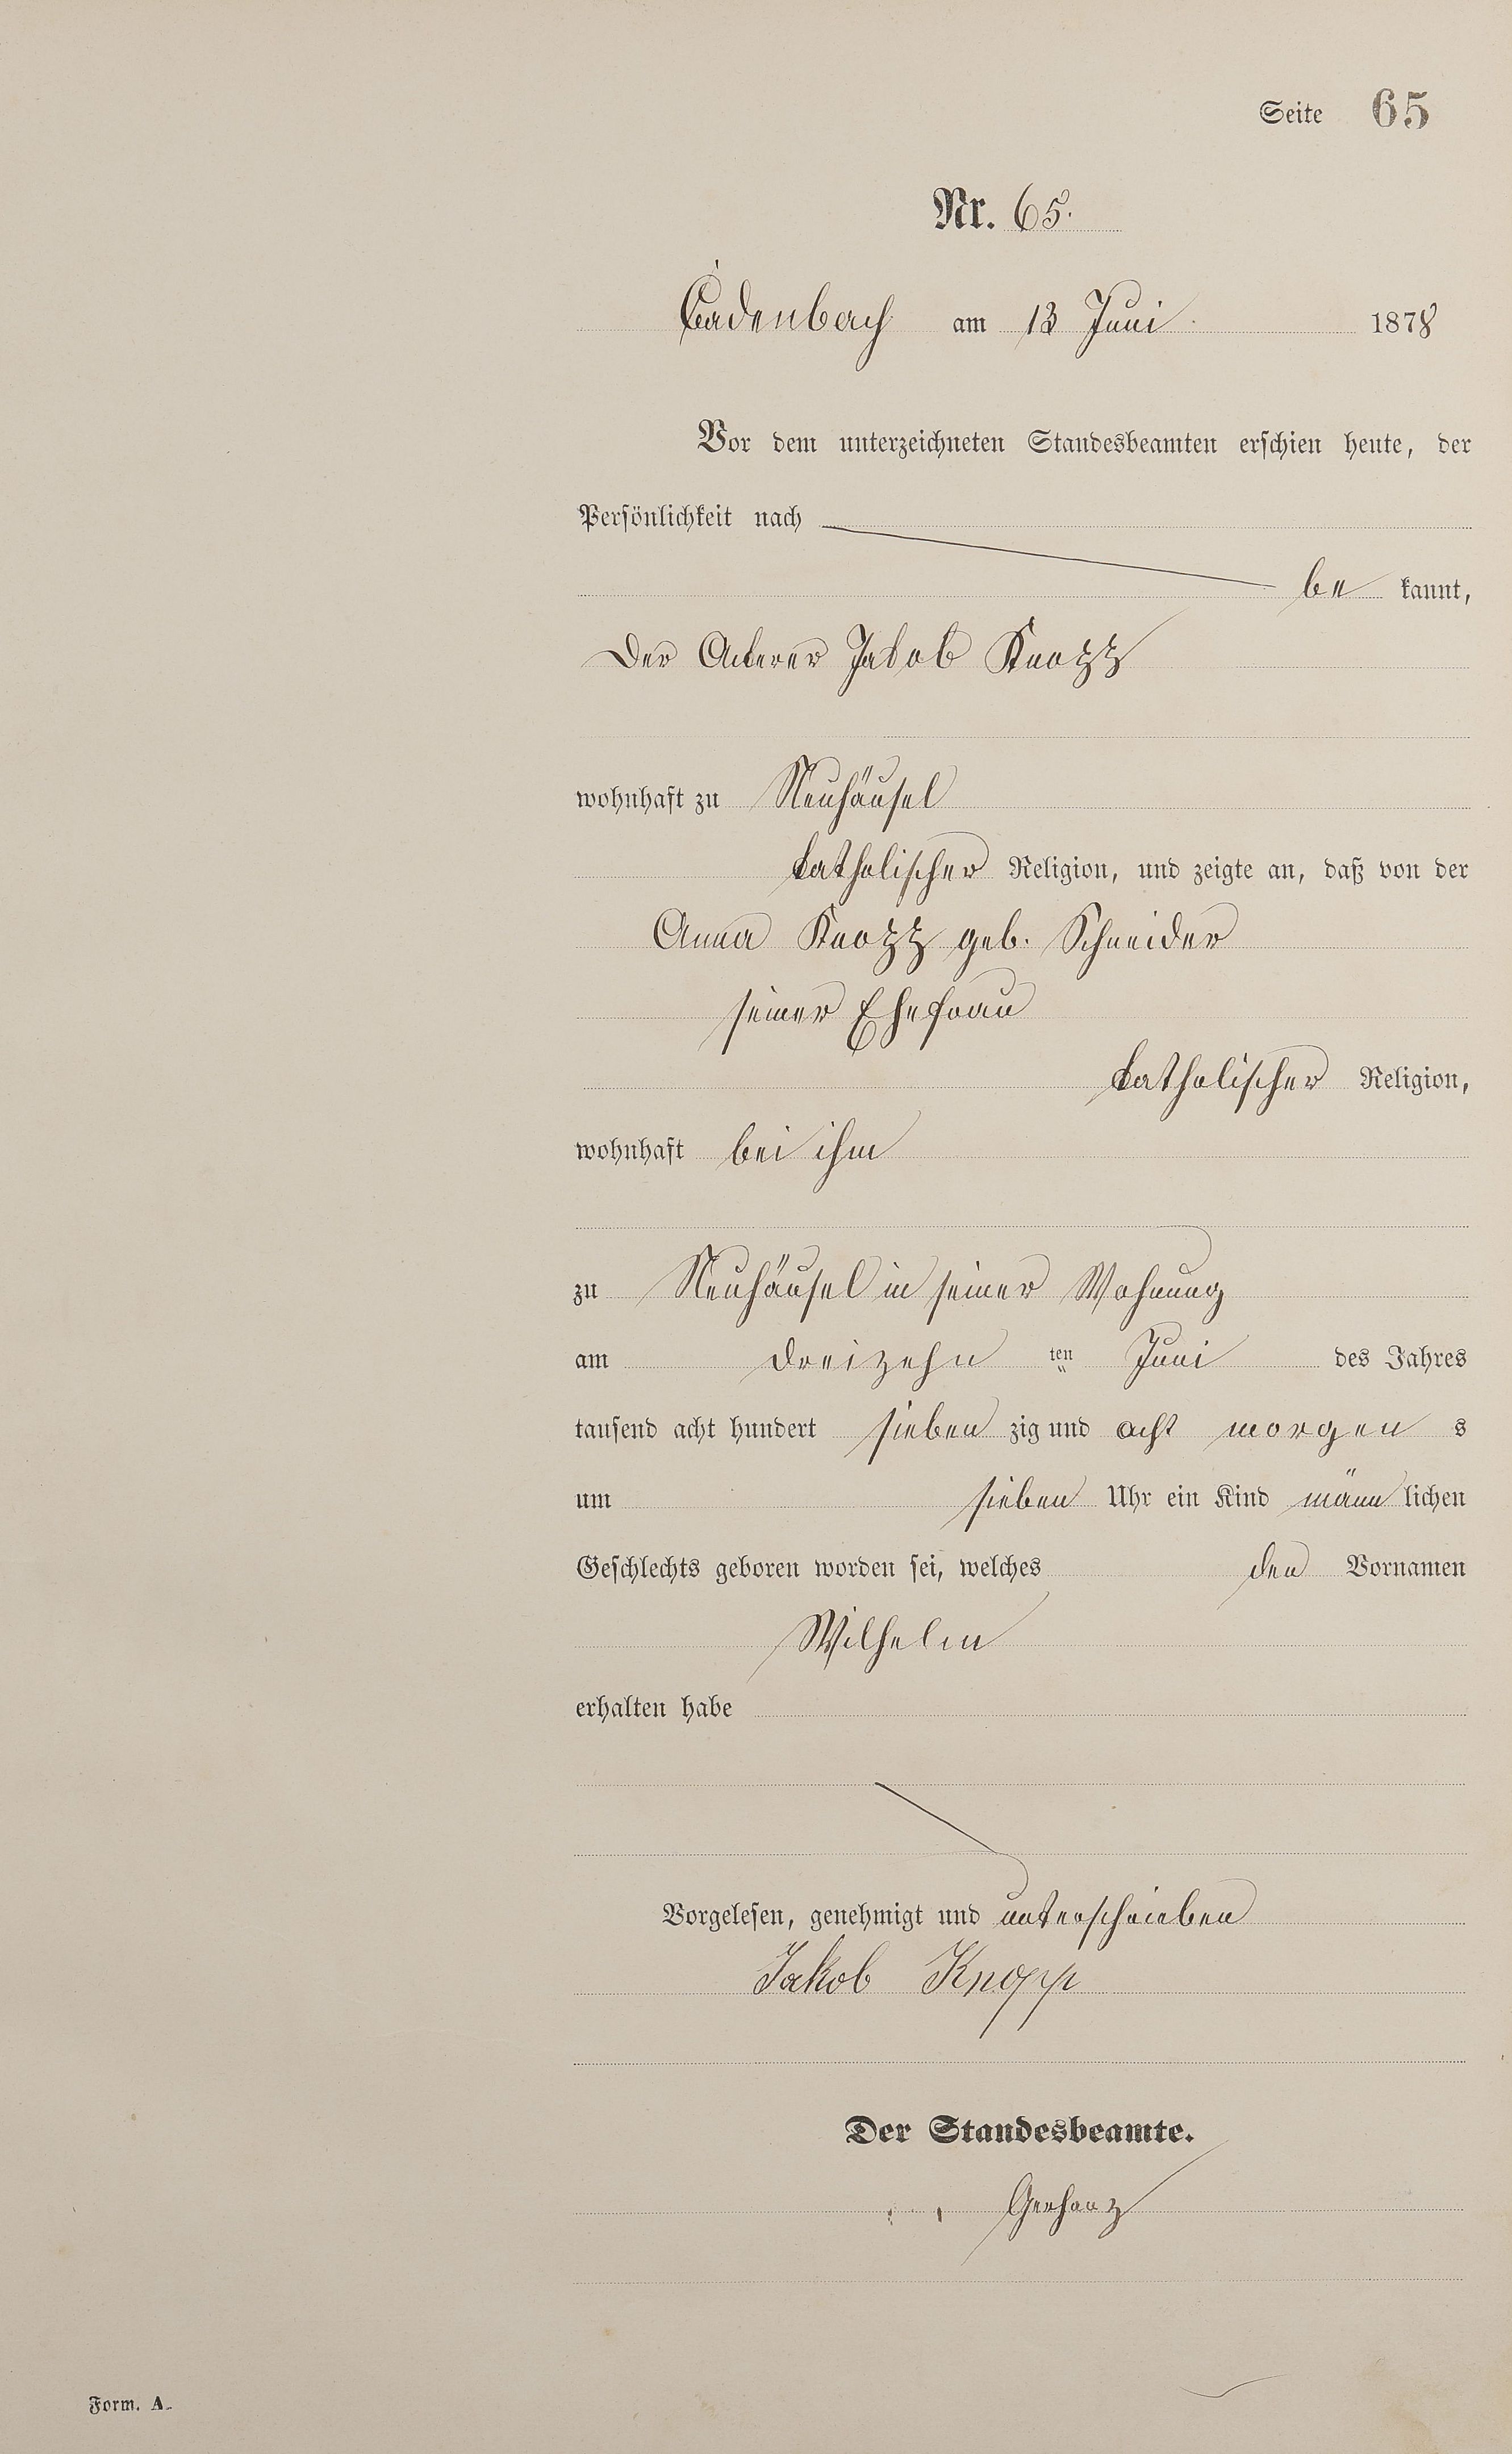 Seite 65
Nr. 65.
Cadenbach am 13 Juni 1878
Vor dem unterzeichneten Standesbeamten erschien heute, der
Persönlichkeit nach
be kannt,
Der Ackerer Jakob Knopp
wohnhaft zu Neuhäusel
katholischer Religion, und zeigte an, daß von der
Anna Knopp geb. Schneider
seiner Ehefrau
katholischer Religion,
wohnhaft bei ihm
zu Neuhäusel in seiner Wohnung
am dreizehn ten Juni des Jahres
tausend acht hundert sieben zig und acht morgen s
um sieben Uhr ein Kind männ lichen
Geschlechts geboren worden sei, welches den Vornamen
Wilhelm
erhalten habe
Vorgelesen, genehmigt und unterschrieben
Jakob Knopp
Der Standesbeamte.
Gerharz
Form. A.